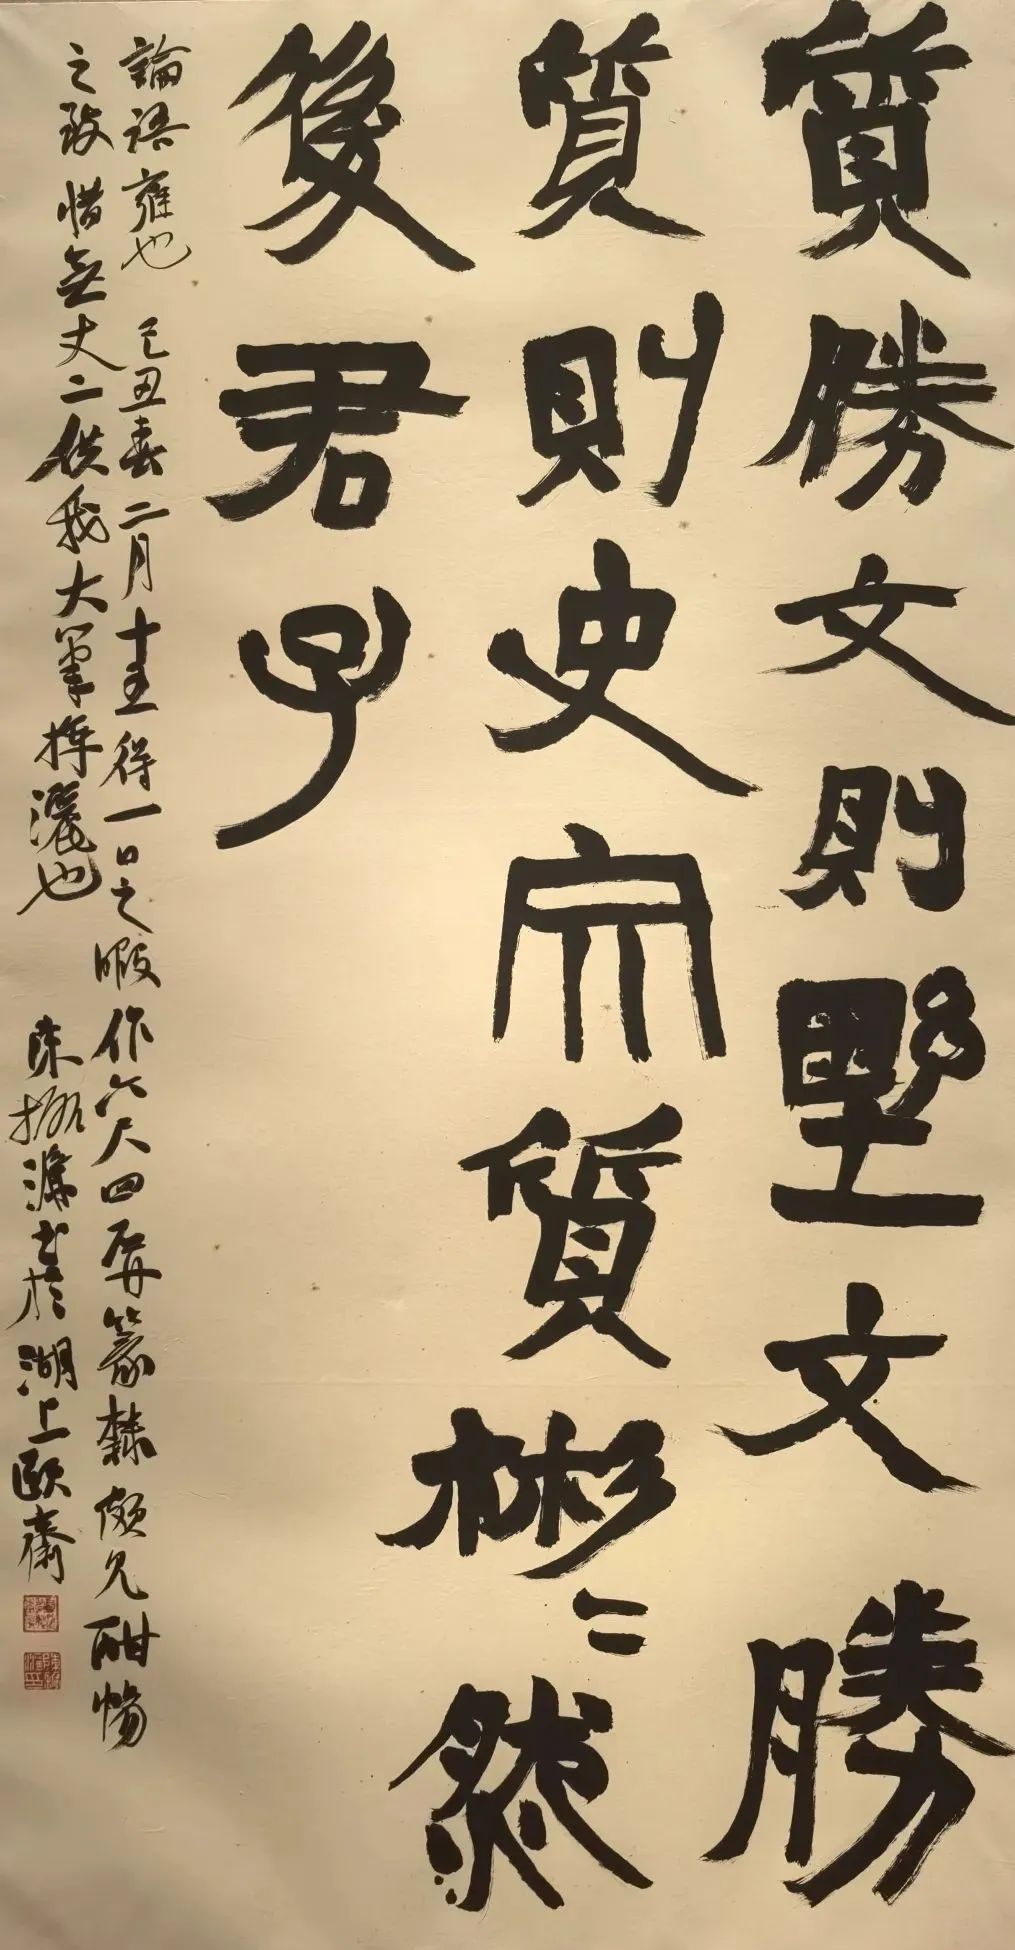 質勝文則野文勝
質則史文質彬〻然
後君子
論語雍也 己丑春二月十五得一日之暇作六尺四屏篆隸頗見酣暢
之致惜無丈二供我大筆揮灑也 陳振濂書於湖上頤齋